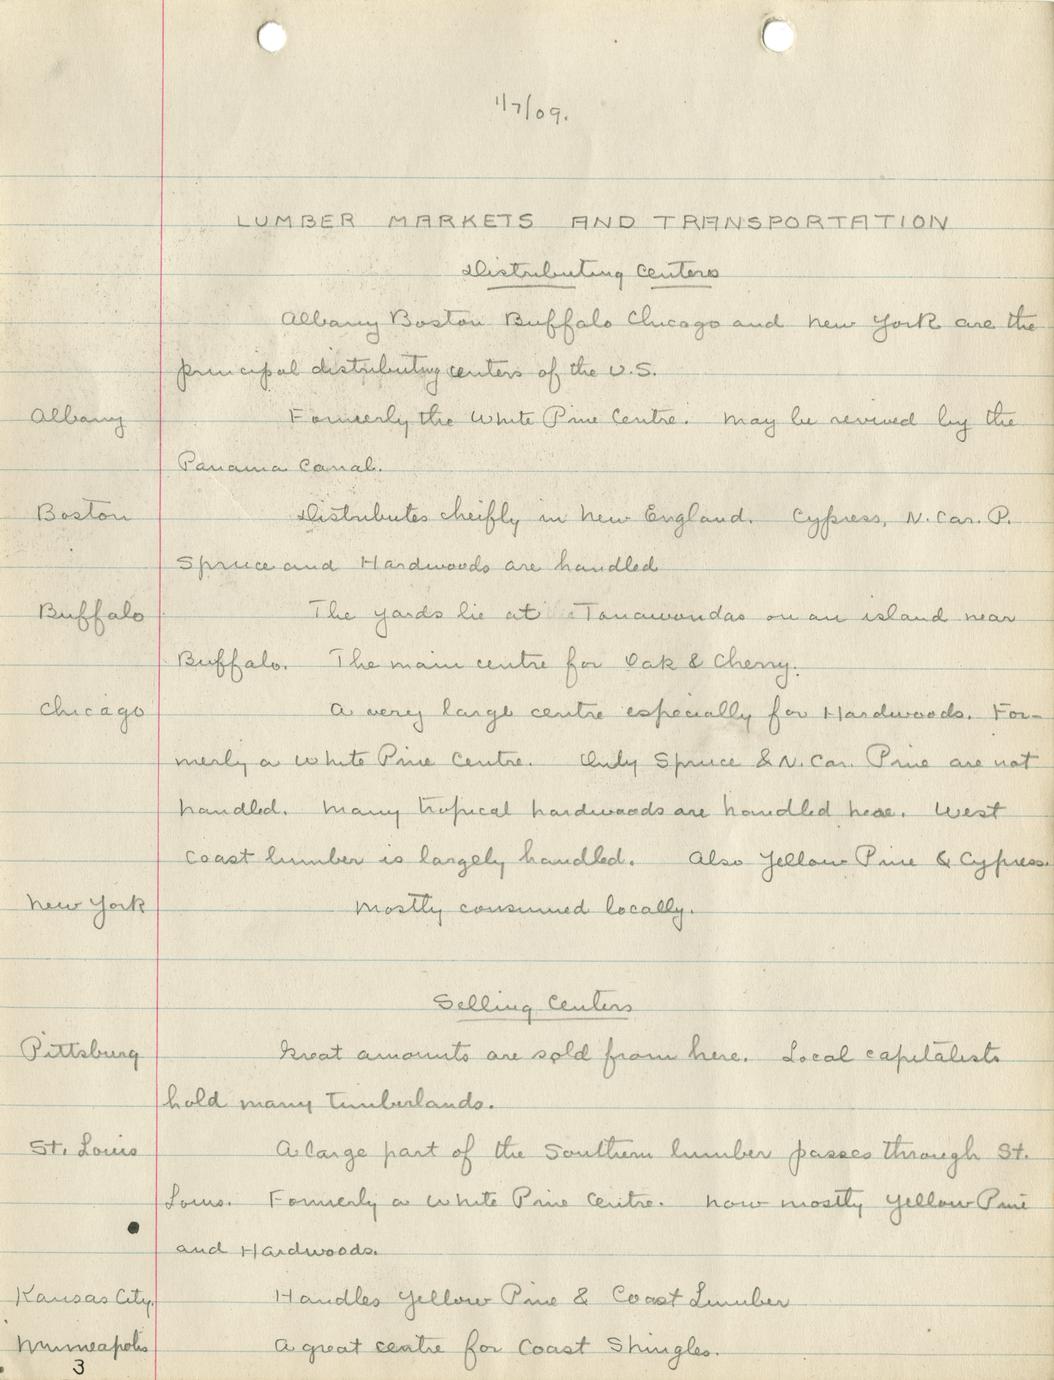 1/7/09.
LUMBER MARKETS AND TRANSPORTATION
Distributing Centers
Albany Boston Buffalo Chicago and New York are the
principal distributing centers of the U.S.
Albany Formerly the White Pine Centre. May be revived by the
Panama Canal.
Boston Distributes cheifly in New England. Cypress, N. Car. P.
Spruce and Hardwoods are handled
Buffalo The yards lie at Tonawondas on an island near
Buffalo. The main centre for Oak & Cherry.
Chicago A very large centre especially for Hardwoods. For-
merly a White Pine Centre. Only Spruce & N. Car. Pine are not
handled. Many tropical hardwoods are handled here. West
Coast lumber is largely handled. Also Yellow Pine & Cypress.
New York Mostly consumed locally.
Selling Centers
Pittsburg Great amounts are sold from here. Local capitalists
hold many Timberlands.
St. Louis A large part of the Southern lumber passes through St.
Louis. Formerly a White Pine Centre. Now mostly Yellow Pine
and Hardwoods.
Kansas City. Handles Yellow Pine & Coast Lumber
Minneapolis A great centre for Coast Shingles.
3